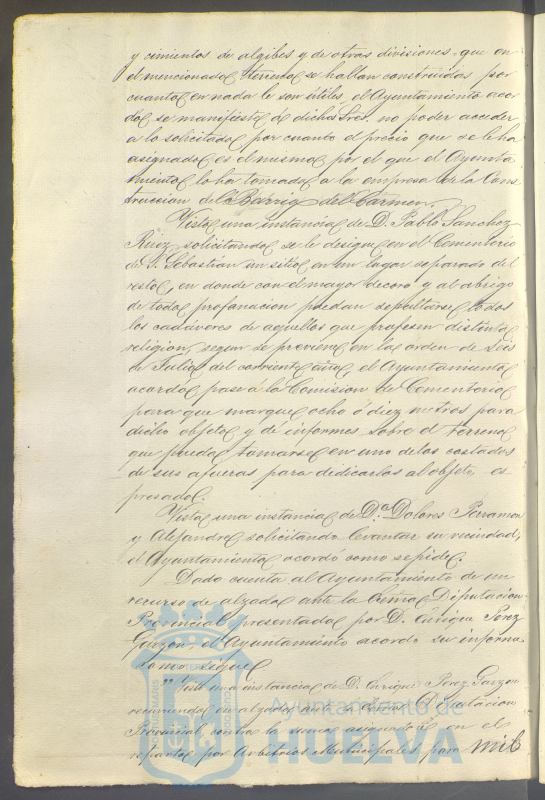 y cimientos de algibes y de otras divisiones que en
el mencionado terreno se hallan construidas por
cuanto en nada le son útiles, el Ayuntamiento acor
dó se manifieste á dichos Sres. no poder acceder
a lo solicitado por cuanto el precio que se le ha
asignado es el mismo por el que el Ayunta
miento lo ha tomado a la empresa de la Cons
truccion del Barrio del Carmen.
Vista una instancia de D. Pablo Sanchez
Ruiz solicitando se le designe en el Cementerio
de S. Sebastian un sitio en un lugar separado del
resto, en donde con el mayor decoro y al abrigo
de toda profanacion puedan sepultarse todos
los cadáveres de aquellos que profesen distinta
religion, segun se previene en la orden de seis
de Julio del corriente año, el Ayuntamiento
acordó pase á la Comision de Cementerio
para que marque ocho ó diez metros para
dicho objeto y dé informes sobre el terreno
que pueda tomarse en uno de los costados
de sus afueras para dedicarlos al objeto es
presado.
Vista una instancia de D.ª Dolores Perramon
y Alejandro solicitando levantar su vecindad,
el Ayuntamiento acordó como se pide.
Dada cuenta al Ayuntamiento de un
recurso de alzada ante la Excma. Diputacion
Provincial presentado por D. Enrique Perez
Garzon, el Ayuntamiento acordó su informa
como sigue
"Vista una instancia de D. Enrique Perez Garzon
recurriendo en alzada ante la Excma. Diputacion
Provincial contra la suma asignada en el
reparto por Arbitrios Municipales para mil
Ayuntamiento de
HUELVA